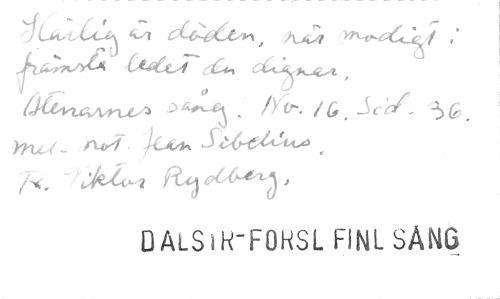 Härlig är döden, när modigt i
främsta ledet du dignar,
Atenarnes sång. No. 16. Sid. 36.
mel. not. Jean Sibelius.
Viktor Rydberg.
DALSTR-FORSL FINL SÅNG